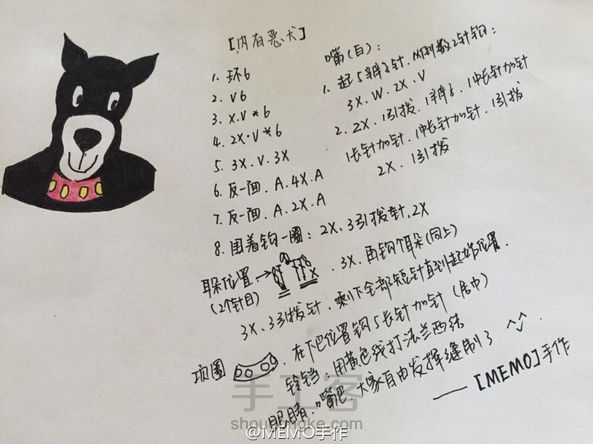 [内有恶犬]
1. 环6
2. V6
3. X.V*6
4. 2X.V*6
5. 3X.V.3X
6. 反一面.A.4X.A
7. 反一面.A.2X.A
8. 围着钩一圈: 2X.3引拔针.2X
耳朵位置→
(2个针目)
3X.再钩个耳朵(同上)
3X.3引拔针.剩下全部短针直到起始位置.
项圈
在下巴位置钩5长针加针(居中)
铃铛:用黄色线打法兰西结
眼睛.嘴巴 大家自由发挥缝制了 ^_^
——[MEMO]手作
嘴(白):
1. 起5辫子针.从倒数2针钩:
3X.W.2X.V
2. 2X.1引拔.1辫子.1中长针加针
1长针加针.1中长针加针.1引拔
2X.1引拔
手工客
shougongke.com
@MEMO手作